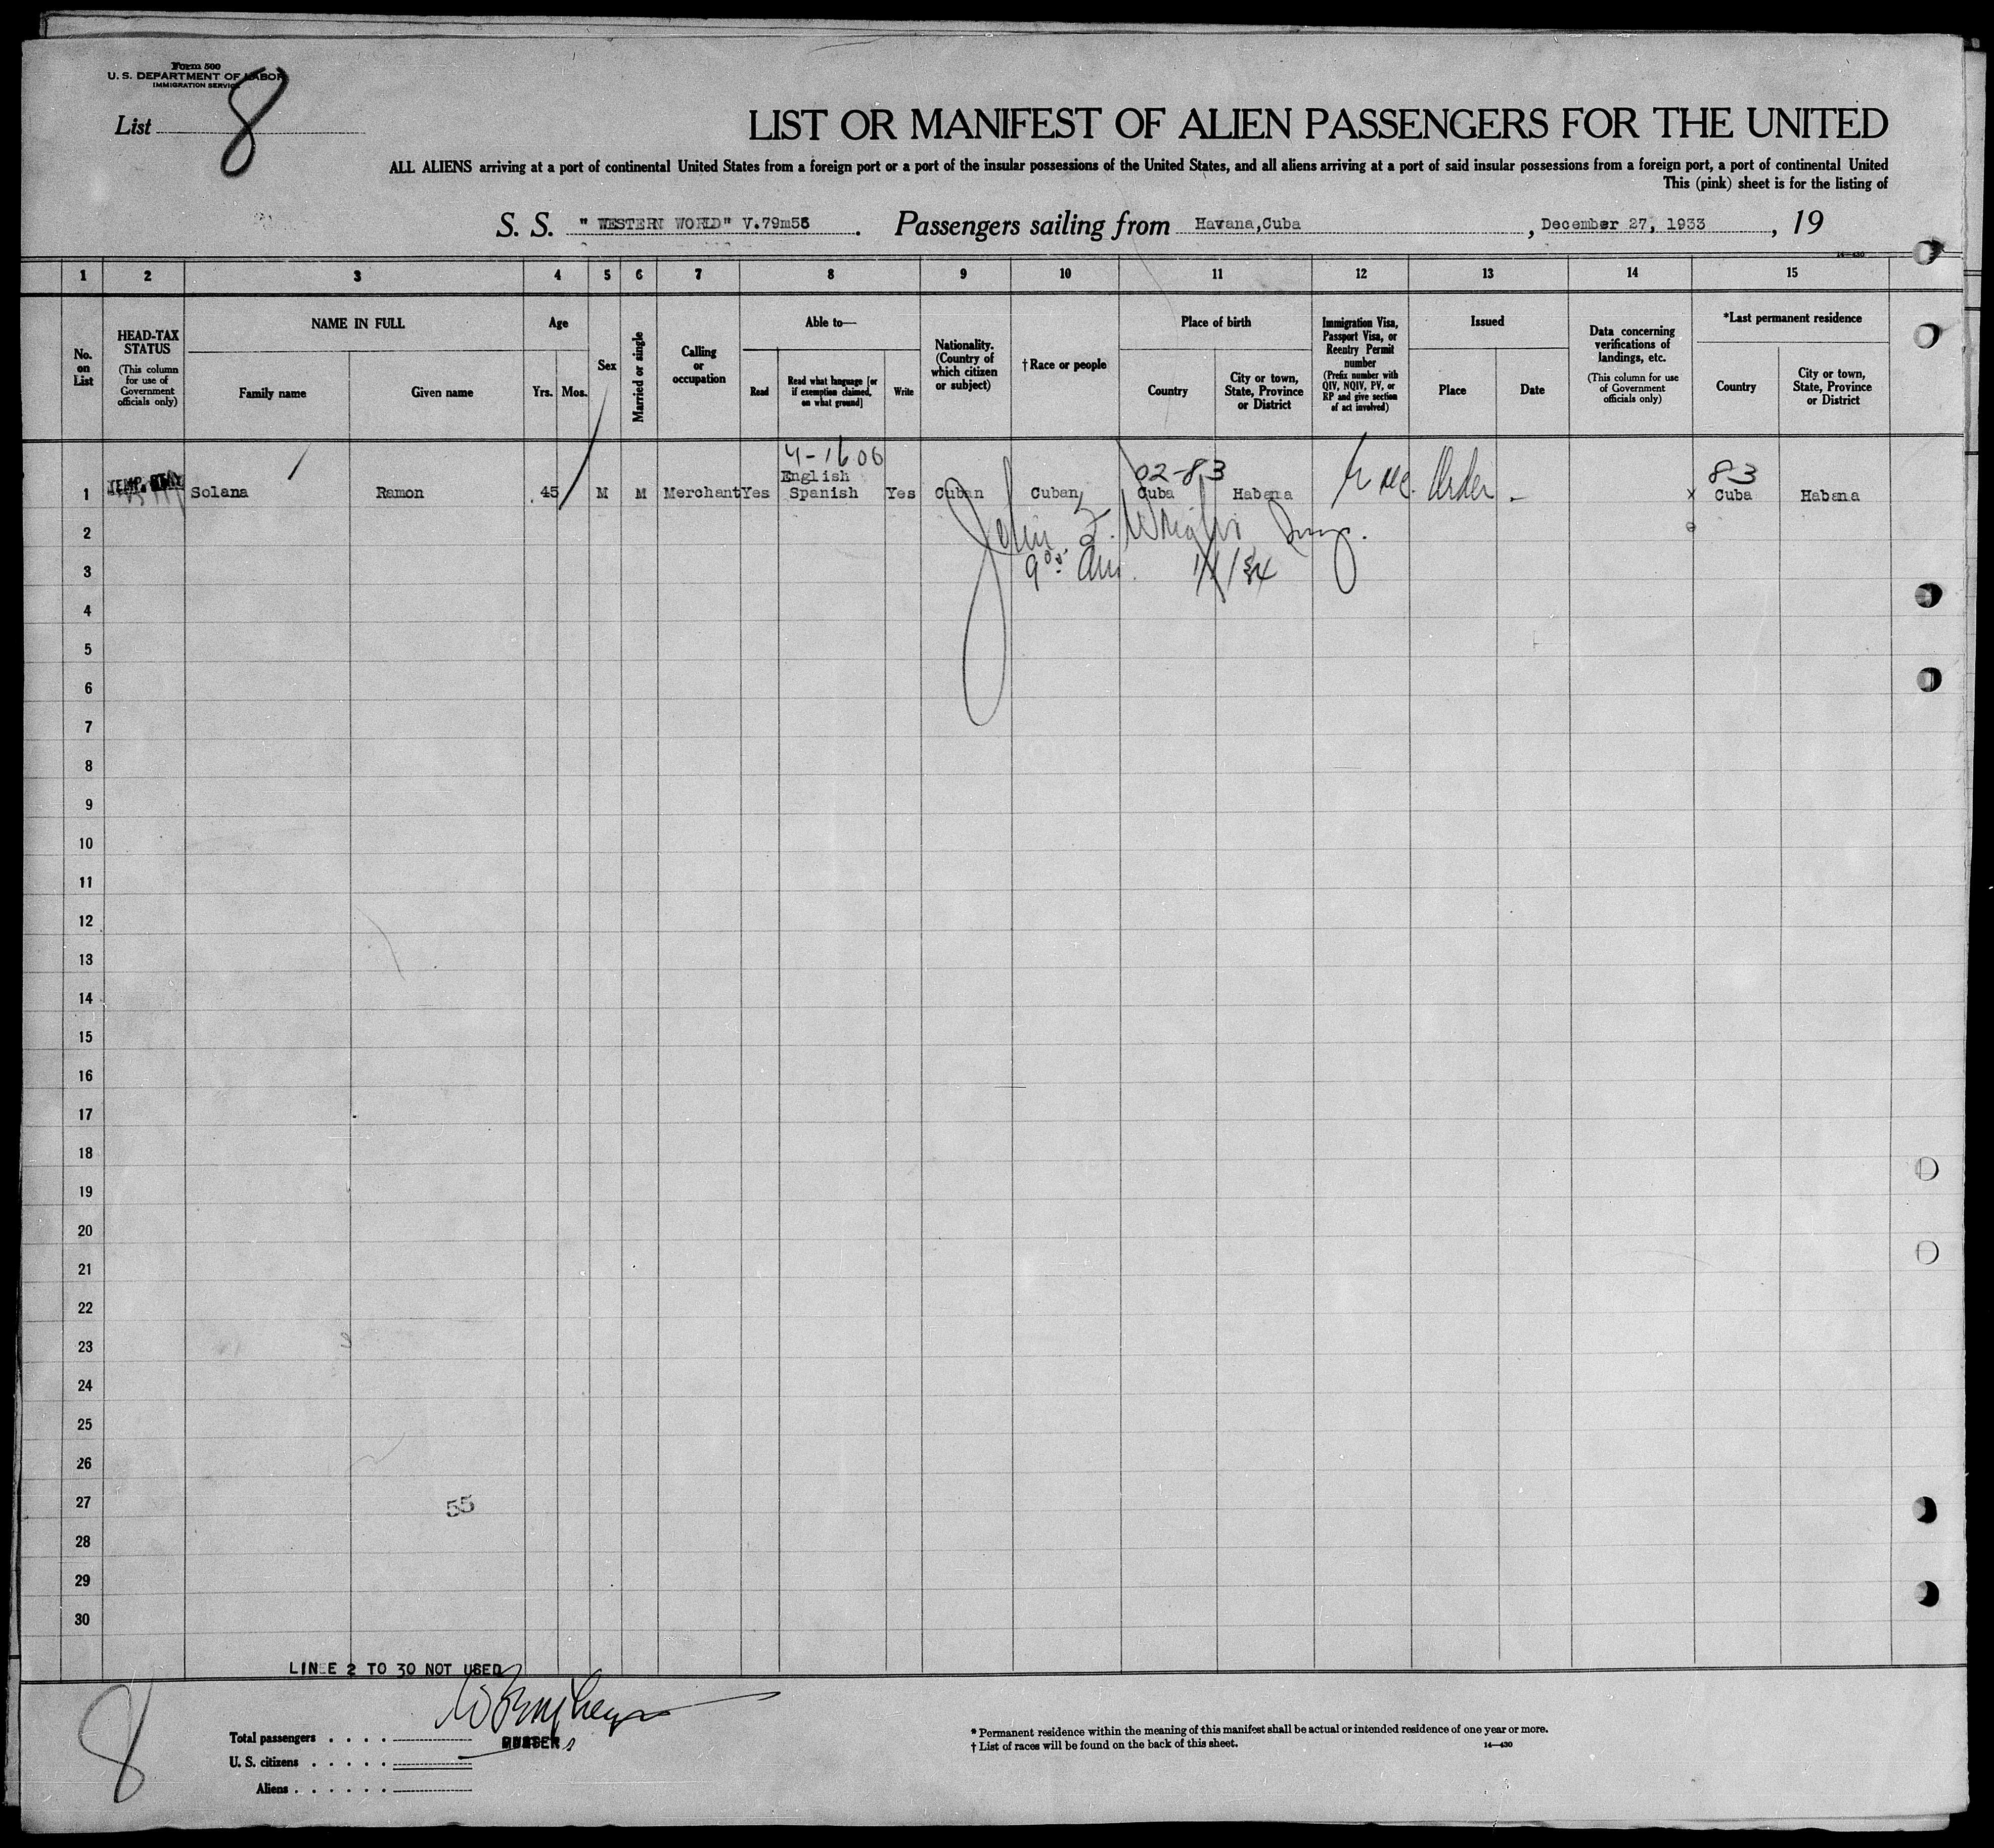 Form 500
U. S. DEPARTMENT OF LABOR
IMMIGRATION SERVICE
List 8
LIST OR MANIFEST OF ALIEN PASSENGERS FOR THE UNITED
ALL ALIENS arriving at a port of continental United States from a foreign port or a port of the insular possessions of the United States, and all aliens arriving at a port of said insular possessions from a foreign port, a port of continental United
This (pink) sheet is for the listing of
S. S. " WESTERN WORLD" V.79m56 . Passengers sailing from Havana,Cuba , December 27, 1933 , 19
14—430
1 2 3 4 5 6 7 8 9 10 11 12 13 14 15
No. on List
HEAD-TAX STATUS
(This column for use of Government officials only)
NAME IN FULL
Family name
Given name
Age
Yrs. Mos.
Sex
Married or single
Calling or occupation
Able to—
Read
Read what language [or if exemption claimed, on what ground]
Write
Nationality. (Country of which citizen or subject)
† Race or people
Place of birth
Country
City or town, State, Province or District
Immigration Visa, Passport Visa, or Reentry Permit number
(Prefix number with QIV, NQIV, PV, or RP and give section of act involved)
Issued
Place
Date
Data concerning verifications of landings, etc.
(This column for use of Government officials only)
*Last permanent residence
Country
City or town, State, Province or District
4-1606
02-83
83
English
1 Solana Ramon 45 M M Merchant Yes Spanish Yes Cuban Cuban Cuba Habana Order - x Cuba Habana
2 John Z. Wright Insp.
3 9 00 am 1/1/34
4
5
6
7
8
9
10
11
12
13
14
15
16
17
18
19
20
21
22
23
24
25
26
27 55
28
29
30
LINEE 2 TO 30 NOT USED
8
Total passengers . . . .
U. S. citizens . . . . .
Aliens . . . . . .
* Permanent residence within the meaning of this manifest shall be actual or intended residence of one year or more.
† List of races will be found on the back of this sheet.
14—430